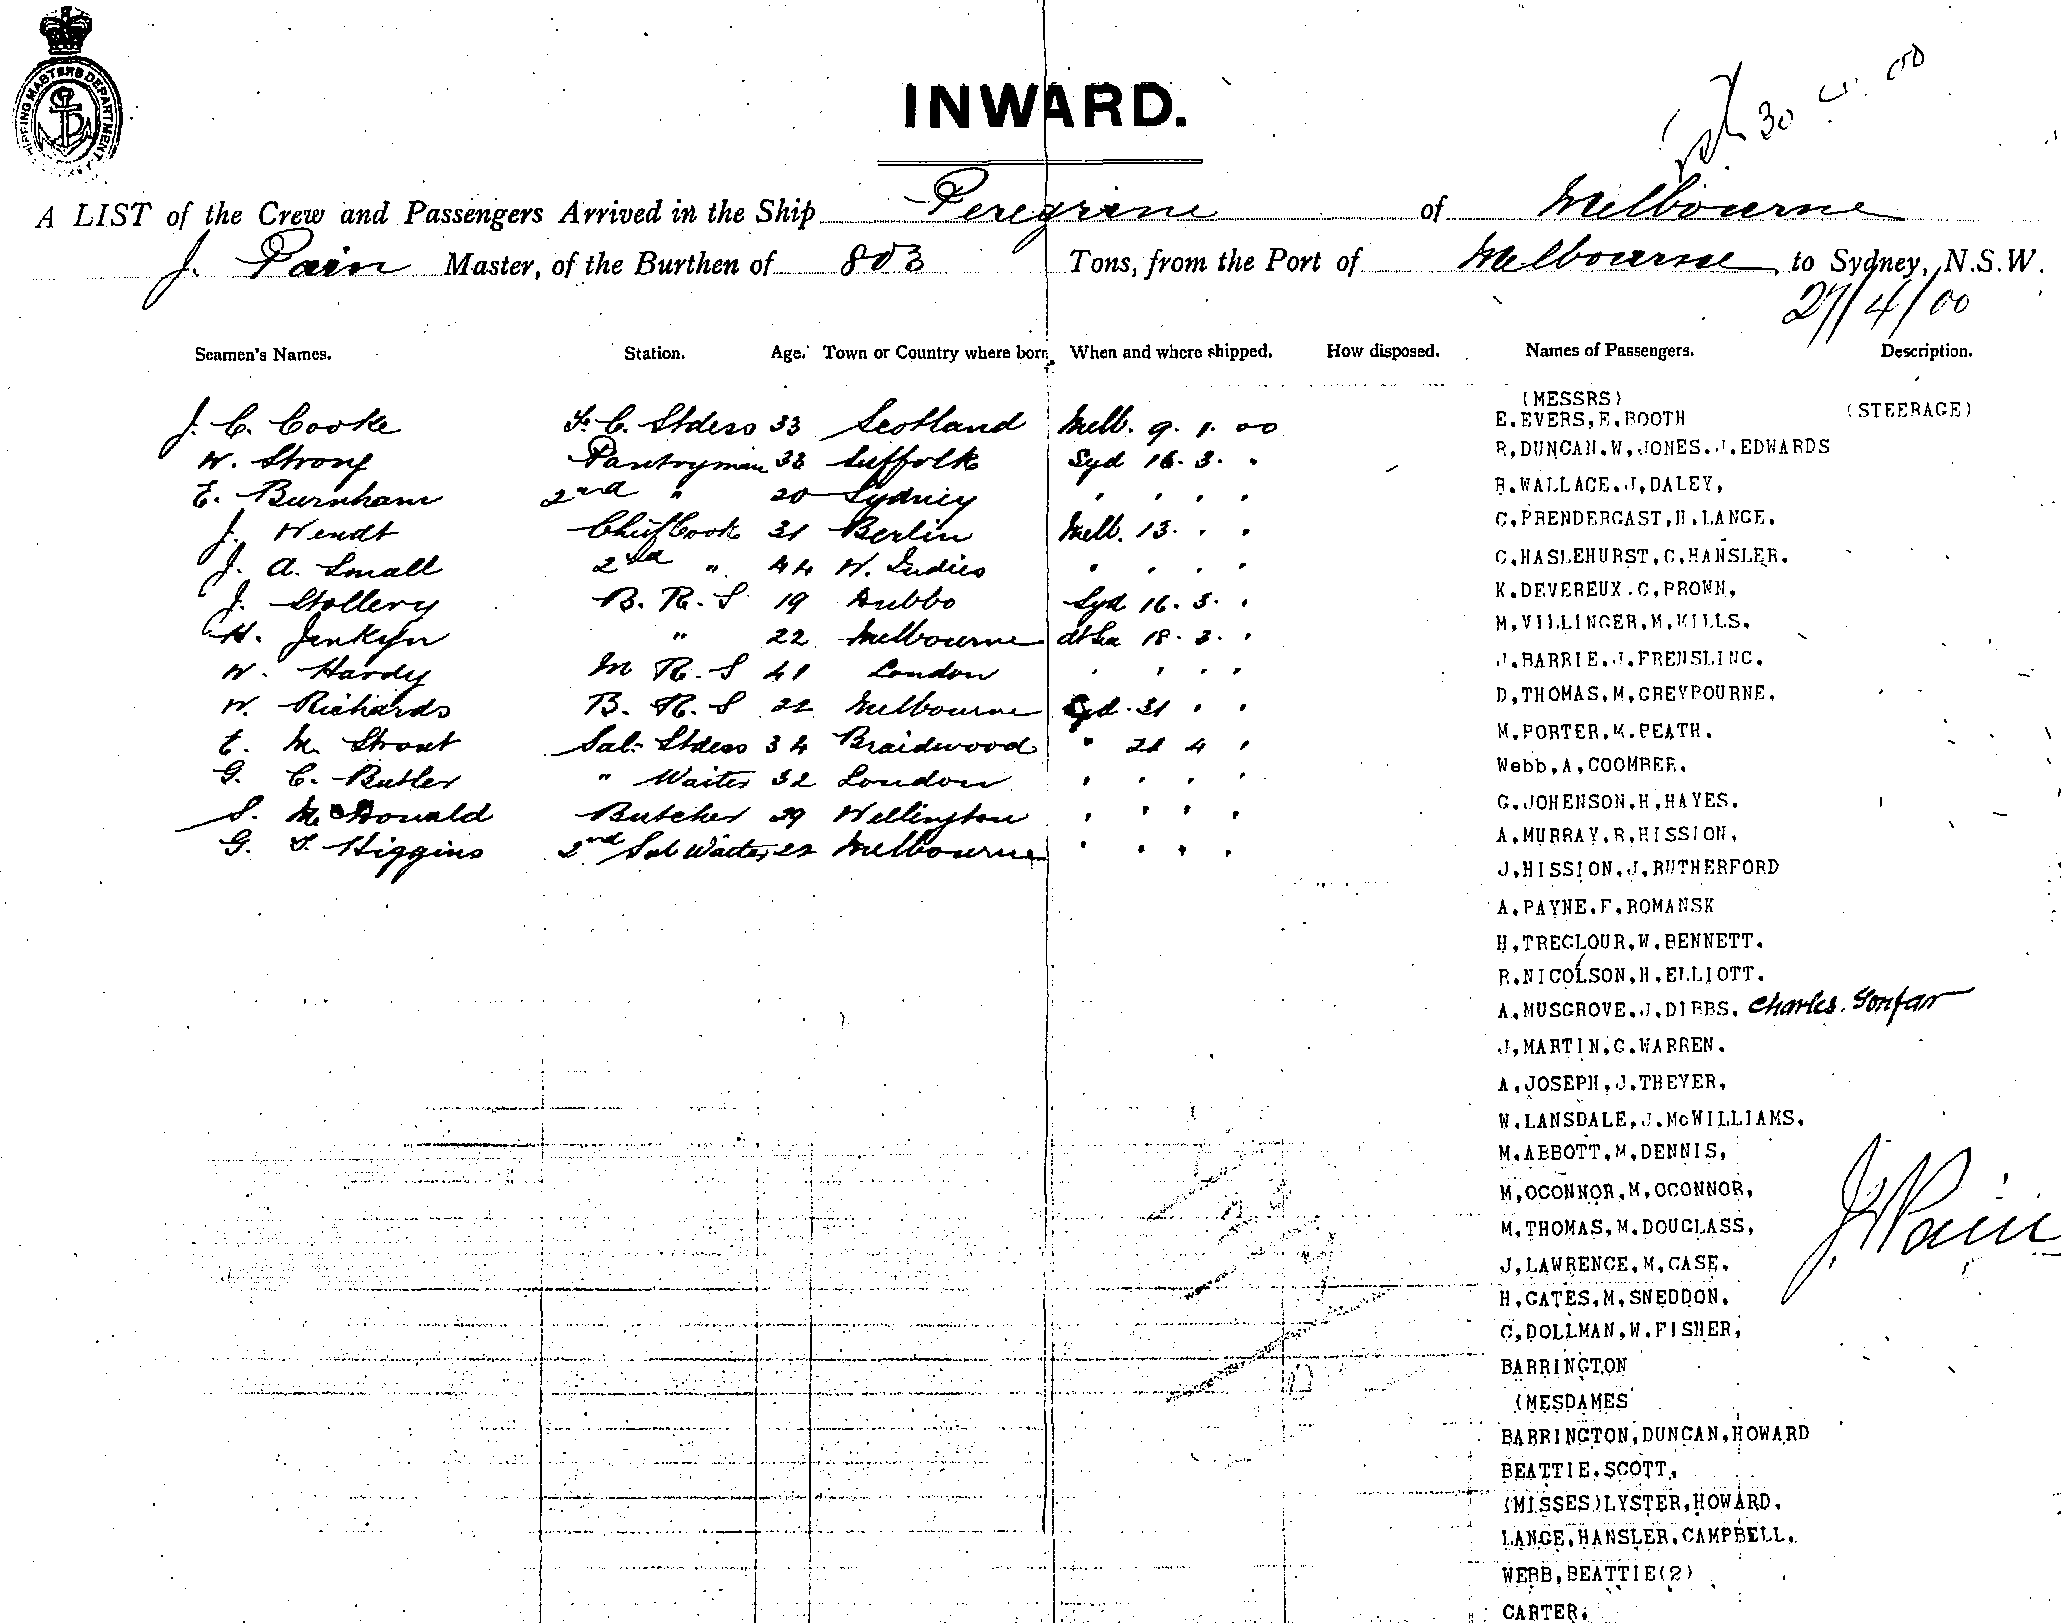 SHIPPING MASTERS DEPARTMENT
INWARD.
30 00
A LIST of the Crew and Passengers Arrived in the Ship Peregrine of Melbourne
J. Pain Master, of the Burthen of 803 Tons, from the Port of Melbourne to Sydney, N.S.W.
27/4/00
Seamen's Names. Station. Age. Town or Country where born. When and where shipped. How disposed. Names of Passengers. Description.
J. C. Cooke F. C. Stdess 33 Scotland Melb. 9. 1. 00
W. Strong Pantryman 33 Suffolk Syd 16. 3. "
E. Burnham 2nd " 20 Sydney " " " "
J. Wendt Chief Cook 31 Berlin Melb. 13. " "
J. A. Small 2nd " 44 W. Indies " " " "
J. Stollery B. R. S 19 Dubbo Syd 16. 3. "
H. Jenkyn " 22 Melbourne at Sea 18. 3. "
W. Hardy M R. S 41 London " " " "
W. Richards B. R. S 22 Melbourne Syd. 21 " "
E. M. Strout Sal. Stdess 34 Braidwood " 21 4 "
G. C. Butler " Waiter 32 London " " " "
S. McDonald Butcher 29 Wellington " " " "
G. T. Higgins 2nd Sal Waiter 22 Melbourne " " " "
(MESSRS)
E.EVERS,E.BOOTH (STEERAGE)
R,DUNCAN.W,JONES.J.EDWARDS
R.WALLACE.J,DALEY,
C.PRENDERGAST,H.LANGE.
C.HASLEHURST,C.HANSLER.
K.DEVEREUX.C.BROWN,
M,VILLINGER,M,MILLS,
J.BARRIE.J.FRENSLING.
D,THOMAS,M,GREYBOURNE.
M.PORTER,M.PEATH.
Webb,A,COOMBEE.
G.JOHENSON.H.HAYES.
A.MURRAY.R.HISSION,
J,HISSION.J.RUTHERFORD
A.PAYNE.F.ROMANSK
H,TREGLOUR,W.BENNETT.
R.NICOLSON,H.ELLIOTT.
A.MUSGROVE.J.DIBBS. Charles.
J,MARTIN,G.WARREN.
A,JOSEPH,J.THEYER,
W.LANSDALE,J.McWILLIAMS.
M.ABBOTT,M,DENNIS,
M,OCONNOR,M,OCONNOR,
M,THOMAS,M.DOUGLASS,
J,LAWRENCE,M,CASE.
H,GATES,M,SNEDDON.
C,DOLLMAN,W.FISHER,
BARRINGTON
(MESDAMES
BARRINGTON,DUNCAN,HOWARD
BEATTIE.SCOTT.
(MISSES)LYSTER,HOWARD.
LANGE,HANSLER,CAMPBELL.
WEBB,BEATTIE(2)
CARTER.
J Pain